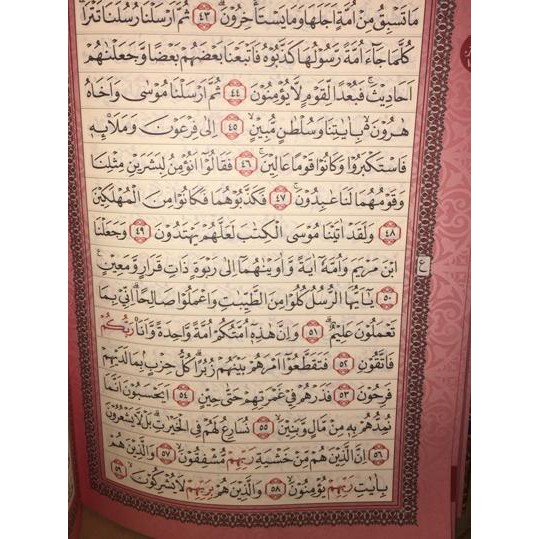 مَا تَسْبِقُ مِنْ اُمَّةٍ اَجَلَهَا وَمَا يَسْتَأْخِرُوْنَۗ ﴿٤٣﴾ ثُمَّ اَرْسَلْنَا رُسُلَنَا تَتْرَاۗ
كُلَّمَا جَاۤءَ اُمَّةً رَّسُوْلُهَا كَذَّبُوْهُ فَاَتْبَعْنَا بَعْضَهُمْ بَعْضًا وَّجَعَلْنٰهُمْ
اَحَادِيْثَۚ فَبُعْدًا لِّقَوْمٍ لَّا يُؤْمِنُوْنَ ﴿٤٤﴾ ثُمَّ اَرْسَلْنَا مُوْسٰى وَاَخَاهُ
هٰرُوْنَ ەۙ بِاٰيٰتِنَا وَسُلْطٰنٍ مُّبِيْنٍۙ ﴿٤٥﴾ اِلٰى فِرْعَوْنَ وَمَلَا۟ىِٕهٖ
فَاسْتَكْبَرُوْا وَكَانُوْا قَوْمًا عَالِيْنَۚ ﴿٤٦﴾ فَقَالُوْٓا اَنُؤْمِنُ لِبَشَرَيْنِ مِثْلِنَا
وَقَوْمُهُمَا لَنَا عٰبِدُوْنَۚ ﴿٤٧﴾ فَكَذَّبُوْهُمَا فَكَانُوْا مِنَ الْمُهْلَكِيْنَ
﴿٤٨﴾ وَلَقَدْ اٰتَيْنَا مُوْسَى الْكِتٰبَ لَعَلَّهُمْ يَهْتَدُوْنَ ﴿٤٩﴾ وَجَعَلْنَا
ابْنَ مَرْيَمَ وَاُمَّهٗٓ اٰيَةً وَّاٰوَيْنٰهُمَآ اِلٰى رَبْوَةٍ ذَاتِ قَرَارٍ وَّمَعِيْنٍ ࣖ
ع
﴿٥٠﴾ يٰٓاَيُّهَا الرُّسُلُ كُلُوْا مِنَ الطَّيِّبٰتِ وَاعْمَلُوْا صَالِحًاۗ اِنِّيْ بِمَا
تَعْمَلُوْنَ عَلِيْمٌۗ ﴿٥١﴾ وَاِنَّ هٰذِهٖٓ اُمَّتُكُمْ اُمَّةً وَّاحِدَةً وَّاَنَا۠ رَبُّكُمْ
فَاتَّقُوْنِ ﴿٥٢﴾ فَتَقَطَّعُوْٓا اَمْرَهُمْ بَيْنَهُمْ زُبُرًاۗ كُلُّ حِزْبٍۢ بِمَا لَدَيْهِمْ
فَرِحُوْنَ ﴿٥٣﴾ فَذَرْهُمْ فِيْ غَمْرَتِهِمْ حَتّٰى حِيْنٍ ﴿٥٤﴾ اَيَحْسَبُوْنَ اَنَّمَا
نُمِدُّهُمْ بِهٖ مِنْ مَّالٍ وَّبَنِيْنَۙ ﴿٥٥﴾ نُسَارِعُ لَهُمْ فِى الْخَيْرٰتِۗ بَلْ لَّا يَشْعُرُوْنَ
﴿٥٦﴾ اِنَّ الَّذِيْنَ هُمْ مِّنْ خَشْيَةِ رَبِّهِمْ مُّشْفِقُوْنَۙ ﴿٥٧﴾ وَالَّذِيْنَ هُمْ
بِاٰيٰتِ رَبِّهِمْ يُؤْمِنُوْنَۙ ﴿٥٨﴾ وَالَّذِيْنَ هُمْ بِرَبِّهِمْ لَا يُشْرِكُوْنَۙ ﴿٥٩﴾